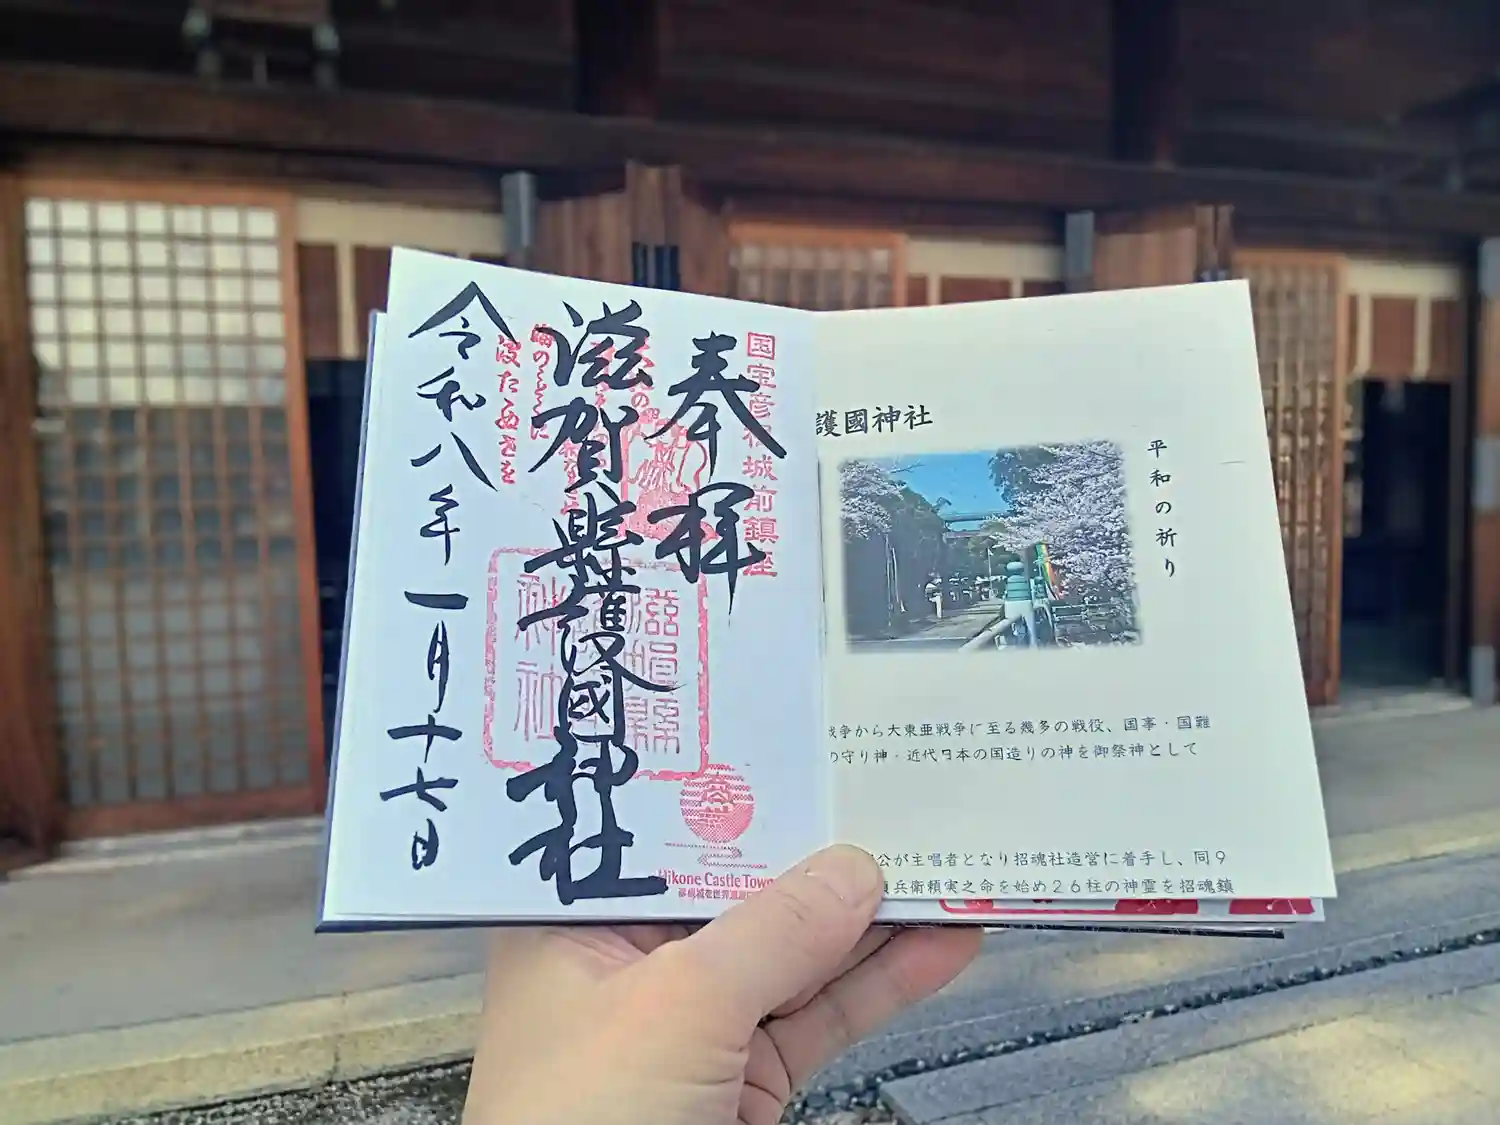 奉拝
国宝彦根城前鎮座
滋賀県護國神社
滋賀縣
神社
令和八年一月十七日
Hikone Castle Town
彦根城を世界遺産に
護國神社
平和の祈り
戦争から大東亜戦争に至る幾多の戦役、国事・国難
の守り神・近代日本の国造りの神を御祭神として
公が主唱者となり招魂社造営に着手し、同9
兵衛頼実之命を始め26柱の神霊を招魂鎮